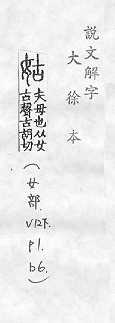 說文解字
大徐本
姑
夫母也从女
古聲古胡切
（女部．V12下．P1．b6．）